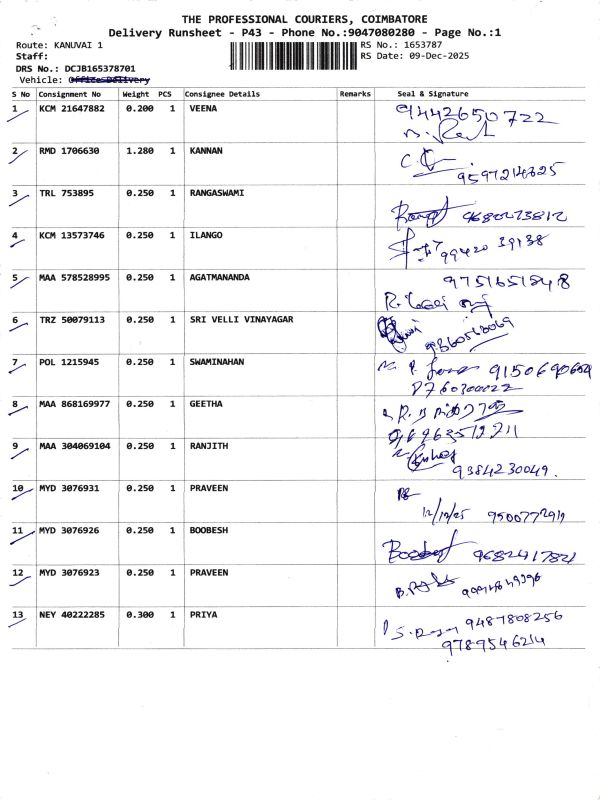 THE PROFESSIONAL COURIERS, COIMBATORE
Delivery Runsheet - P43 - Phone No.:9047080280 - Page No.:1
Route: KANUVAI 1 RS No.: 1653787
Staff: RS Date: 09-Dec-2025
DRS No.: DCJB165378701
Vehicle: Office Delivery
S No Consignment No Weight PCS Consignee Details Remarks Seal & Signature
1 KCM 21647882 0.200 1 VEENA 9442650722
2 RMD 1706630 1.280 1 KANNAN
3 TRL 753895 0.250 1 RANGASWAMI
4 KCM 13573746 0.250 1 ILANGO 99420 39138
5 MAA 578528995 0.250 1 AGATMANANDA 9751651848
6 TRZ 50079113 0.250 1 SRI VELLI VINAYAGAR
7 POL 1215945 0.250 1 SWAMINAHAN 9150690604
8760300022
8 MAA 868169977 0.250 1 GEETHA
9 MAA 304069104 0.250 1 RANJITH
9384230049.
10 MYD 3076931 0.250 1 PRAVEEN
12/12/25 9500772919
11 MYD 3076926 0.250 1 BOOBESH
12 MYD 3076923 0.250 1 PRAVEEN
13 NEY 40222285 0.300 1 PRIYA 9487808256
9789546214